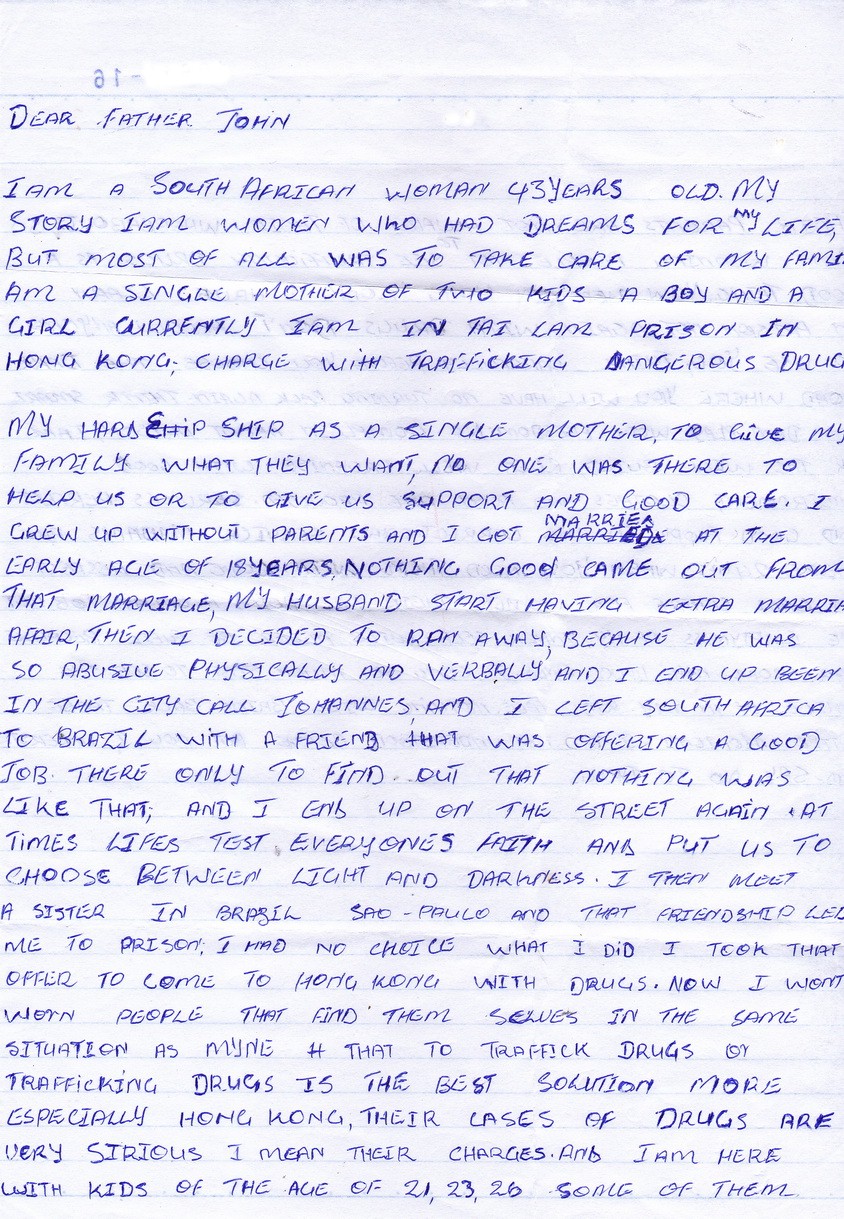 - 16
DEAR FATHER JOHN
I AM A SOUTH AFRICAN WOMAN 43YEARS OLD. MY
STORY I AM WOMEN WHO HAD DREAMS FOR MY LIFE,
BUT MOST OF ALL WAS TO TAKE CARE OF MY FAMI
AM A SINGLE MOTHER OF TWO KIDS A BOY AND A
GIRL CURRENTLY I AM IN TAI LAM PRISON IN
HONG KONG; CHARGE WITH TRAFFICKING DANGEROUS DRUG
MY HARD SHIP AS A SINGLE MOTHER, TO GIVE MY
FAMILY WHAT THEY WANT, NO ONE WAS THERE TO
HELP US OR TO GIVE US SUPPORT AND GOOD CARE. I
GREW UP WITHOUT PARENTS AND I GOT MARRIED AT THE
EARLY AGE OF 18YEARS, NOTHING GOOD CAME OUT FROM
THAT MARRIAGE, MY HUSBAND START HAVING EXTRA MARRIA
AFFAIR, THEN I DECIDED TO RAN AWAY, BECAUSE HE WAS
SO ABUSIVE PHYSICALLY AND VERBALLY AND I END UP BEEN
IN THE CITY CALL JOHANNES, AND I LEFT SOUTH AFRICA
TO BRAZIL WITH A FRIEND THAT WAS OFFERING A GOOD
JOB THERE ONLY TO FIND OUT THAT NOTHING WAS
LIKE THAT; AND I END UP ON THE STREET AGAIN. AT
TIMES LIFES TEST EVERYONES FAITH AND PUT US TO
CHOOSE BETWEEN LIGHT AND DARKNESS. I THEN MEET
A SISTER IN BRAZIL SAO-PAULO AND THAT FRIENDSHIP LED
ME TO PRISON; I HAD NO CHOICE WHAT I DID I TOOK THAT
OFFER TO COME TO HONG KONG WITH DRUGS. NOW I WONT
PEOPLE THAT FIND THEM SELVES IN THE SAME
SITUATION AS MYNE THAT TO TRAFFICK DRUGS OY
TRAFFICKING DRUGS IS THE BEST SOLUTION MORE
ESPECIALLY HONG KONG, THEIR CASES OF DRUGS ARE
VERY SIRIOUS I MEAN THEIR CHARGES. AND I AM HERE
WITH KIDS OF THE AGE OF 21, 23, 26 SOME OF THEM